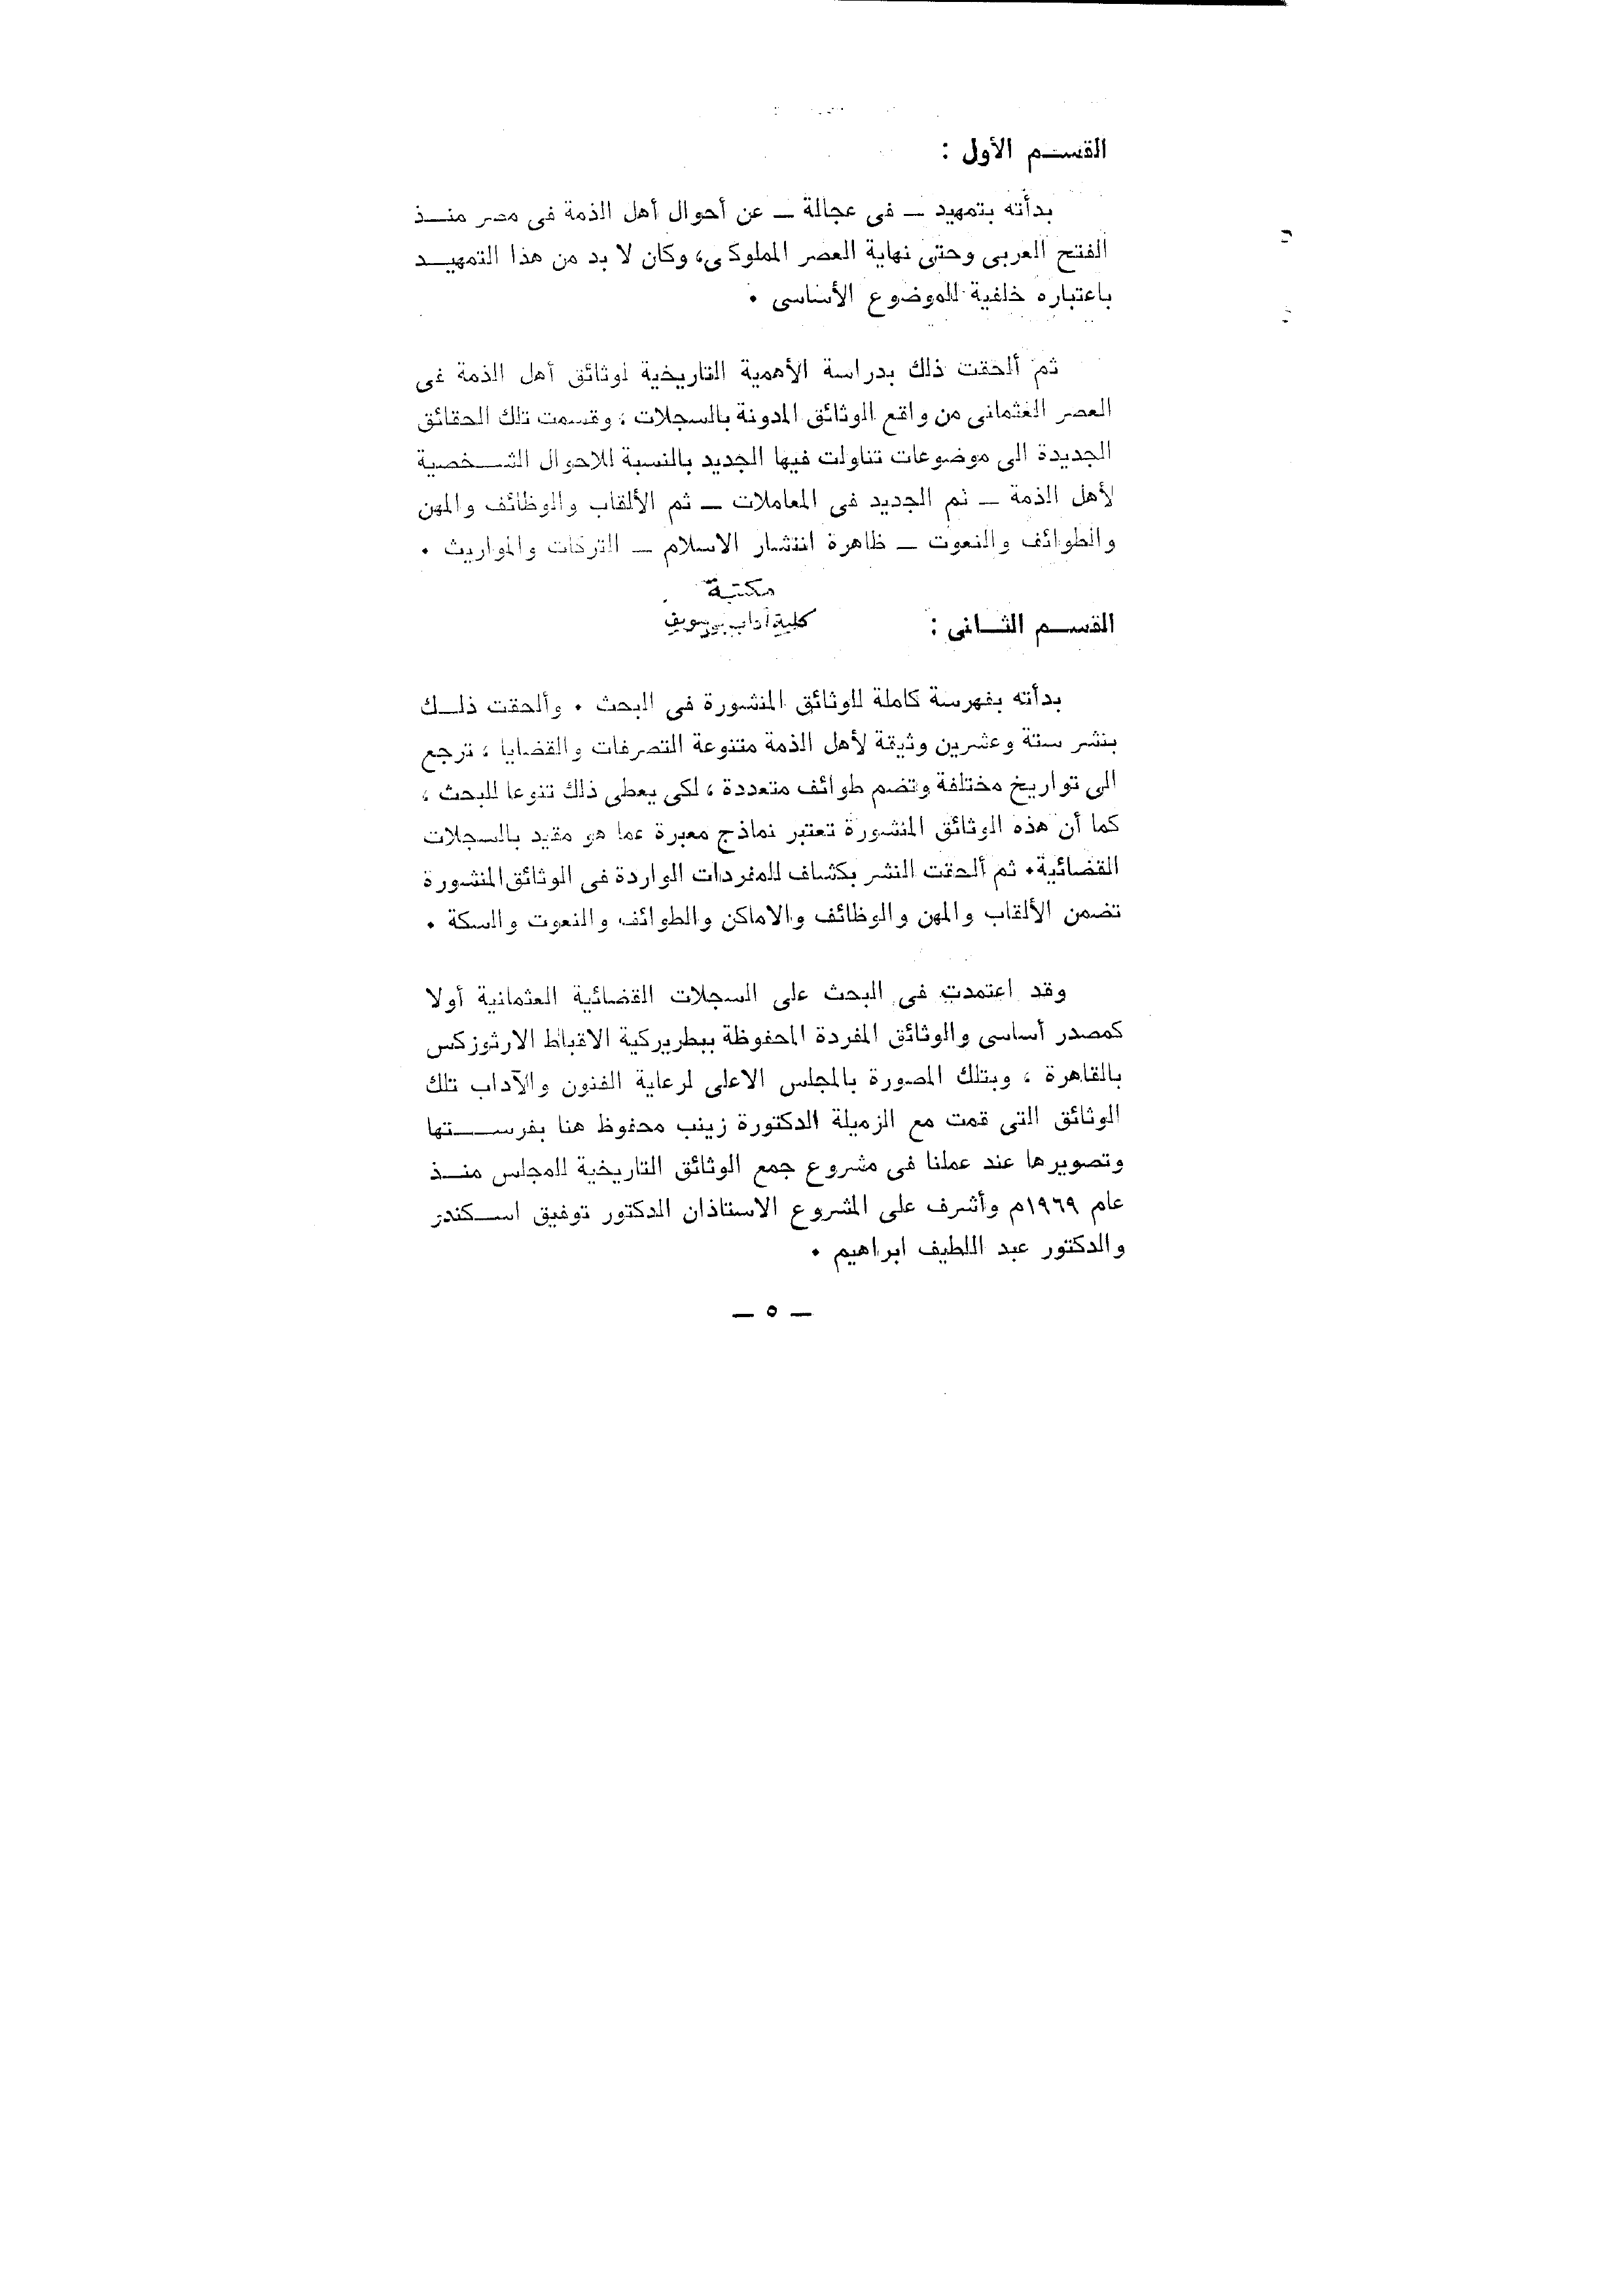 القسم الأول :
بدأته بتمهيد – فى عجالة – عن أحوال أهل الذمة فى مصر منذ
الفتح العربى وحتى نهاية العصر المملوكى، وكان لا بد من هذا التمهيد
باعتباره خلفية للموضوع الأساسى .
ثم ألحقت ذلك بدراسة الأهمية التاريخية لوثائق أهل الذمة فى
العصر العثمانى من واقع الوثائق المدونة بالسجلات ، وقسمت تلك الحقائق
الجديدة الى موضوعات تناولت فيها الجديد بالنسبة للاحوال الشخصية
لأهل الذمة – ثم الجديد فى المعاملات – ثم الألقاب والوظائف والمهن
والطوائف والنعوت – ظاهرة انتشار الاسلام – التركات والمواريث .
مكتبة
كلية آداب بنى سويف
القسم الثانى :
بدأته بفهرسة كاملة للوثائق المنشورة فى البحث . وألحقت ذلك
بنشر ستة وعشرين وثيقة لأهل الذمة متنوعة التصرفات والقضايا ، ترجع
الى تواريخ مختلفة وتضم طوائف متعددة ، لكى يعطى ذلك تنوعا للبحث ،
كما أن هذه الوثائق المنشورة تعتبر نماذج معبرة عما هو مقيد بالسجلات
القضائية. ثم ألحقت النشر بكشاف للمفردات الواردة فى الوثائق المنشورة
تضمن الألقاب والمهن والوظائف والاماكن والطوائف والنعوت والسكة .
وقد اعتمدت فى البحث على السجلات القضائية العثمانية أولا
كمصدر أساسى والوثائق المفردة المحفوظة ببطريركية الاقباط الارثوزكس
بالقاهرة ، وبتلك المصورة بالمجلس الاعلى لرعاية الفنون والآداب تلك
الوثائق التى قمت مع الزميلة الدكتورة زينب محفوظ هنا بفرستها
وتصويرها عند عملنا فى مشروع جمع الوثائق التاريخية للمجلس منذ
عام ١٩٦٩م وأشرف على المشروع الاستاذان الدكتور توفيق اسكندر
والدكتور عبد اللطيف ابراهيم .
– ٥ –